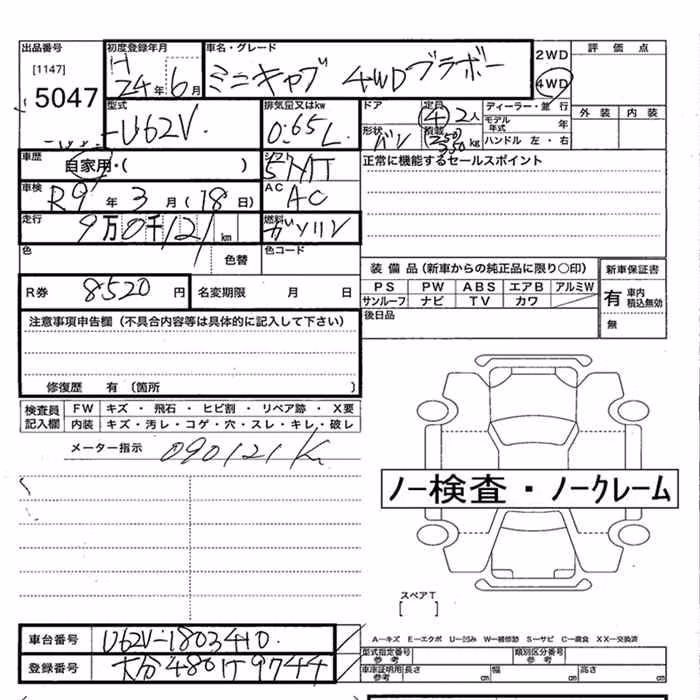 出品番号 初度登録年月 車名・グレード
[1147] 5047
H 24年6月
ミニキャブ 4WDブラボー
2WD
4WD
評価点
外装 内装
型式 -U62V
排気量又はkw 0.65L
ドア 形状 バン
定員 (4) 2人
積載 (250) 350 kg
ディーラー・並行
モデル年式 年
ハンドル 左・右
車歴 自家用・( )
シフト 5MT
正常に機能するセールスポイント
車検 R9年3月(18日)
AC AC
走行 9万0千121km
燃料 ガソリン
色 色替 色コード
R券 8520円 名変期限 月 日
装備品(新車からの純正品に限り○印)
PS PW ABS エアB アルミW
サンルーフ ナビ TV カワ
後日品
新車保証書
有 車内積込無効
無
注意事項申告欄(不具合内容等は具体的に記入して下さい)
修復歴 有(箇所 )
検査員記入欄
FW キズ・飛石・ヒビ割・リペア跡・X要
内装 キズ・汚レ・コゲ・穴・スレ・キレ・破レ
メーター指示 090121K
ノー検査・ノークレーム
スペアT
[ ]
車台番号 U62V-1803410
登録番号 大分480け9744
A―キズ E―エクボ U―凹み W―補修跡 S―サビ C―腐食 XX―交換済
型式指定番号 参考 類別区分番号 参考
車庫証明用 参考 長さ cm 幅 cm 高さ cm